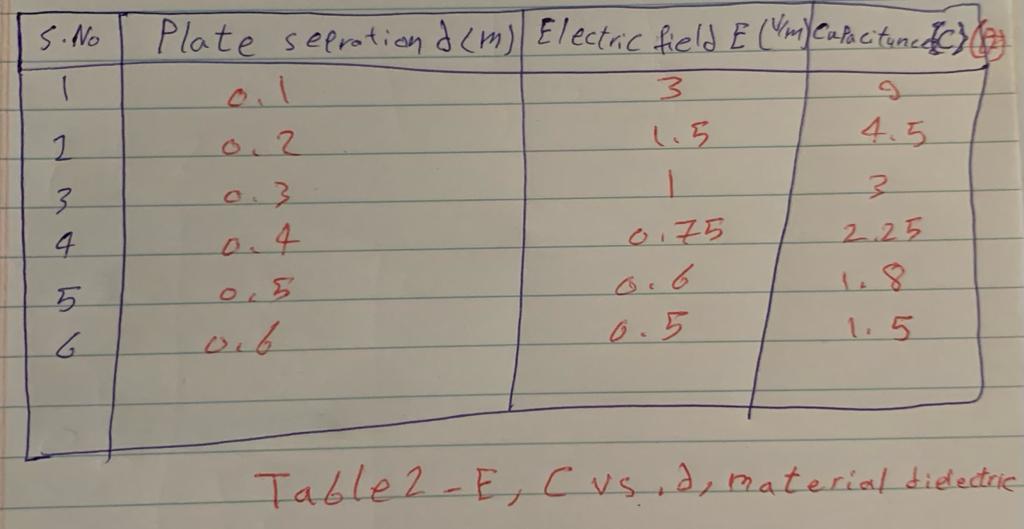 S.No Plate seprotion d(m) Electric field E (V/m) Capacitance{C}
1 0.1 3 9
2 0.2 1.5 4.5
3 0.3 1 3
4 0.4 0.75 2.25
5 0.5 0.6 1.8
6 0.6 0.5 1.5
Table2-E, C vs.d, material dielectric